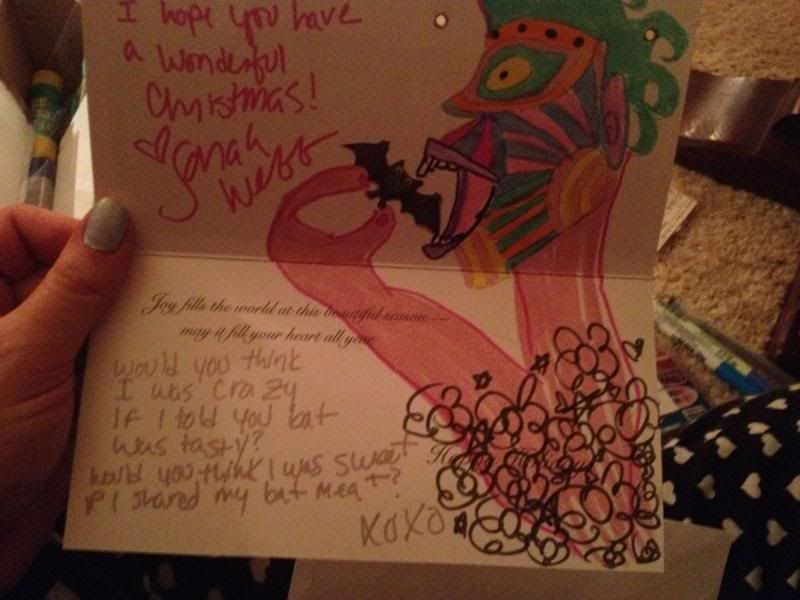 I hope you have
a wonderful
Christmas!
Joy fills the world at this beautiful season —
may it fill your heart all year
would you think
I was crazy
If I told you bat
was tasty?
would you think I was sweet
if I shared my bat meat?
XOXO